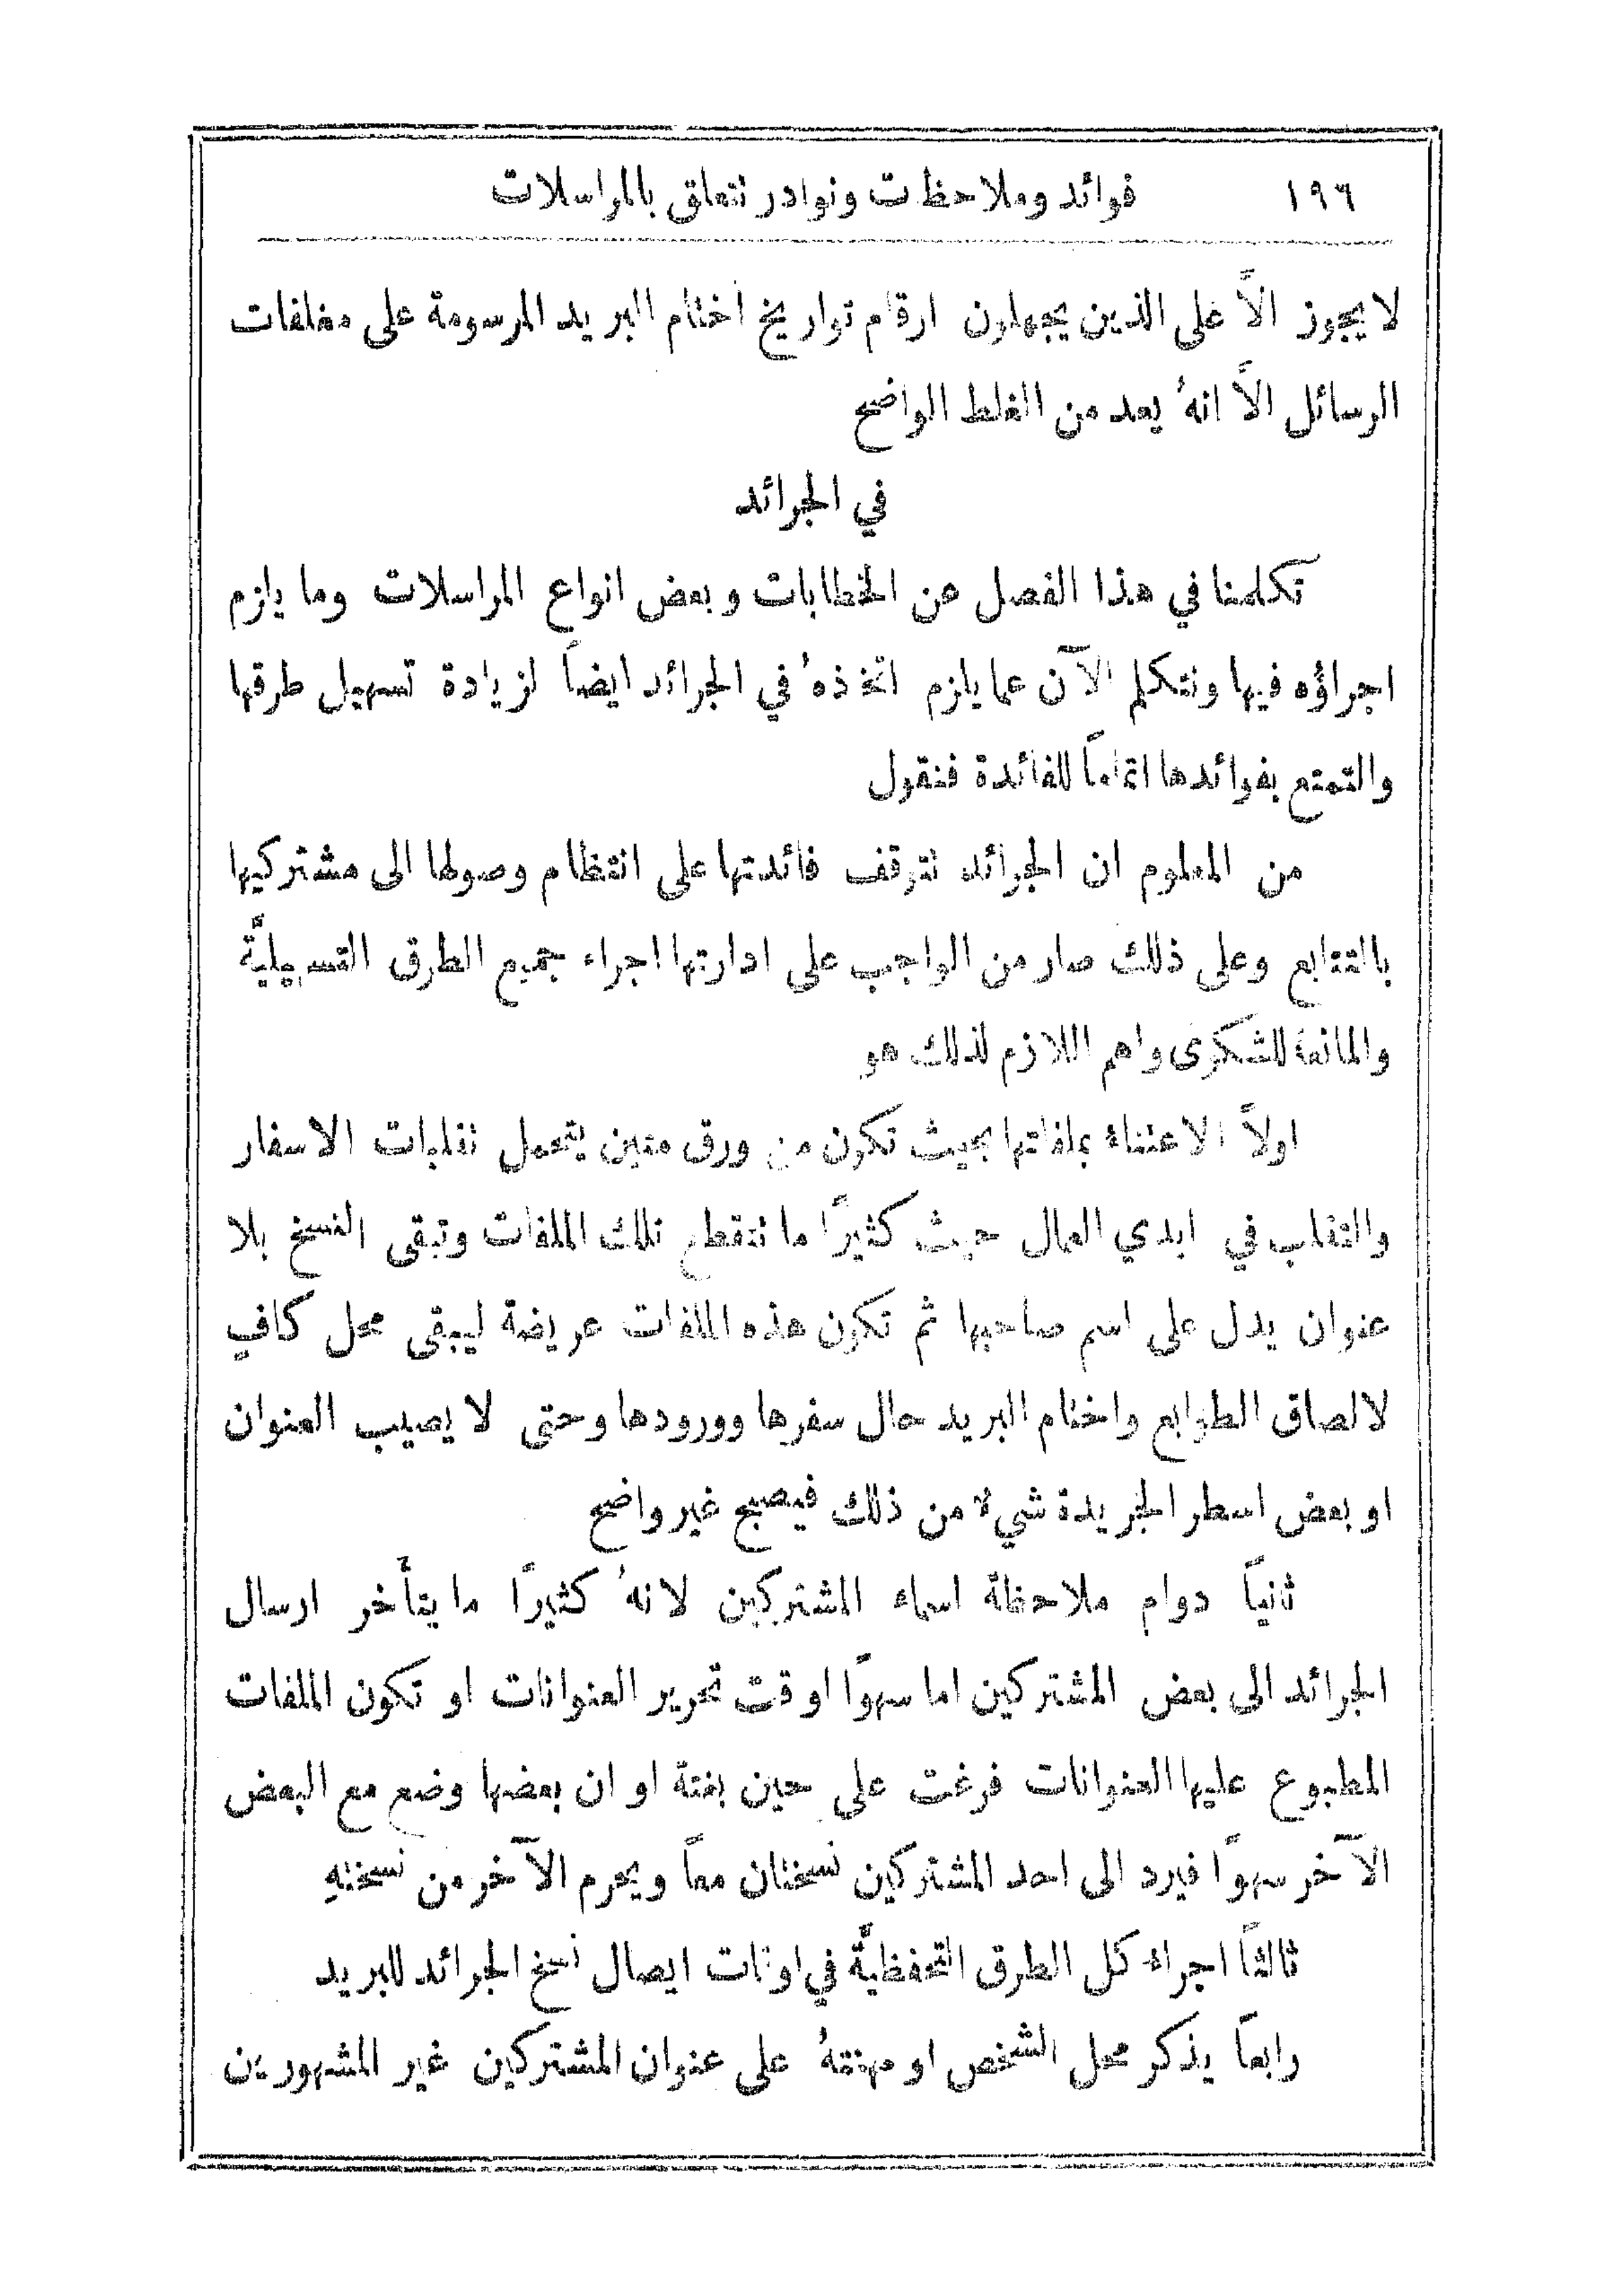 ١٩٦ فوائد وملاحظات ونوادر تتعلق بالمراسلات
لا يجوز الاَّ على الذين يجهلون ارقام تواريخ اختام البريد المرسومة على مغلفات
الرسائل الاَّ انهُ يعد من الغلط الواضح
في الجرائد
تكلمنا في هذا الفصل عن الخطابات وبعض انواع المراسلات وما يلزم
اجراؤه فيها ونتكلم الآن عما يلزم اتخذهُ في الجرائد ايضاً لزيادة تسهيل طرقها
والتمتع بفوائدها اتماماً للفائدة فنقول
من المعلوم ان الجرائد تتوقف فائدتها على انتظام وصولها الى مشتركيها
بالتتابع وعلى ذلك صار من الواجب على ادارتها اجراء جميع الطرق التسهيليَّة
والمانعة للشكوى واهم اللازم لذلك هو
اولاً الاعتناء بملفاتها بحيث تكون من ورق متين يتحمل تقلبات الاسفار
والتقلب في ايدي العمال حيث كثيرًا ما تتقطع تلك الملفات وتبقى النسخ بلا
عنوان يدل على اسم صاحبها ثم تكون هذه الملفات عريضة ليبقى محل كافي
لالصاق الطوابع واختام البريد حال سفرها وورودها وحتى لا يصيب العنوان
او بعض اسطر الجريدة شيء من ذلك فيصبح غير واضح
ثانياً دوام ملاحظة اسماء المشتركين لانهُ كثيرًا ما يتأخر ارسال
الجرائد الى بعض المشتركين اما سهوًا وقت تحرير العنوانات او تكون الملفات
المطبوع عليها العنوانات فرغت على حين بغتة او ان بعضها وضع مع البعض
الآخر سهوًا فيرد الى احد المشتركين نسختان معاً ويحرم الآخر من نسختهِ
ثالثاً اجراء كل الطرق التحفظيَّة في اوقات ايصال نسخ الجرائد للبريد
رابعاً يذكر محل الشخص او مهنتهُ على عنوان المشتركين غير المشهورين